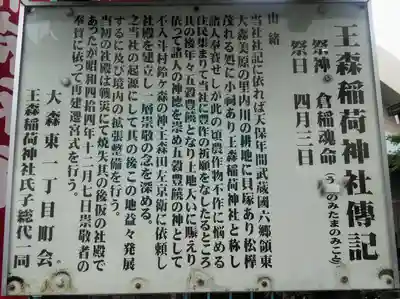 王森稲荷神社傳記
祭神 倉稲魂命(うのみたまのみこと)
祭日 四月三日
由緒
当社社記に依れば天保年間武蔵國六郷領東
大森美原の里内川の耕地に貝塚あり松樺
茂れる処に小祠あり王森稲荷神社と称し
諸人奉賽せしが此の頃農作物不作に悩める
住民集まりて当社に豊作の祈願をなしたるところ
其の後年々五穀豊饒となり土地人々に賑えり
依って諸人の神徳を崇め五穀豊饒の神として
不入斗村鈴ヶ森の神官王森田左京衛に依頼し
社殿を建立し一層崇敬の念を深める。
之当社の起源にして其の後この地益々発展
するに及び境内の拡張整備を行う。
当初の社殿は戦災にて焼失其の後仮の社殿で
あったが昭和四拾四年十二月七日崇敬者の
奉賛に依って再建遷宮式を行う。
大森東一丁目町会
王森稲荷神社氏子総代一同